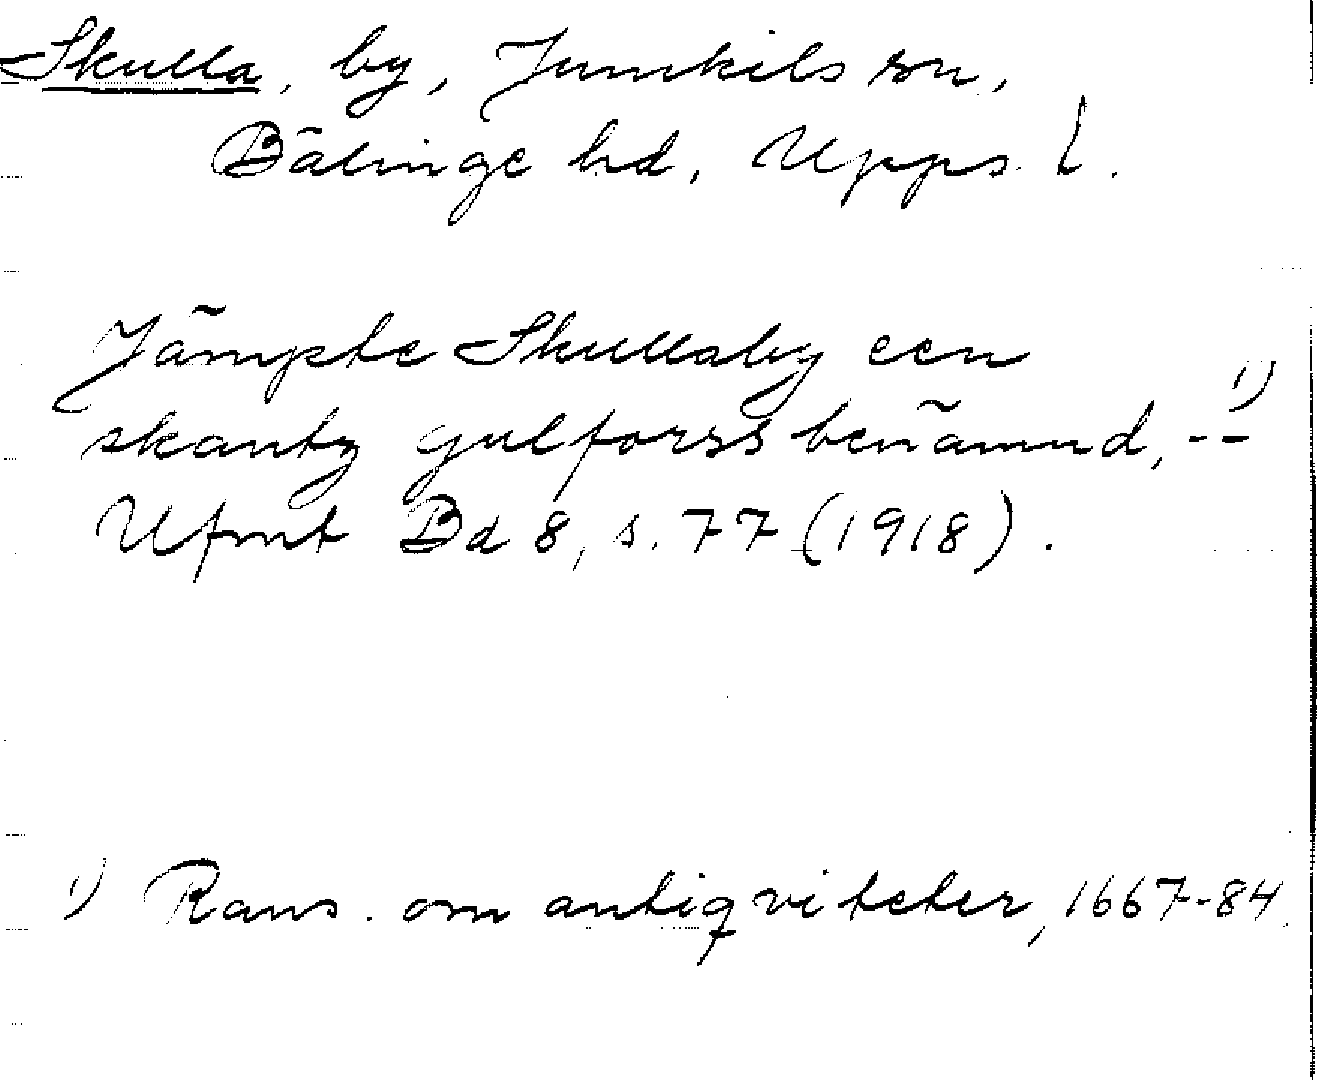 Skulla, by, Jumkils sn,
Bälinge hd, Upps. l.
Jämpte Skullaby een
skantz gulforss benämnd, -- 1)
Ufmt Bd 8, s. 77 (1918).
1) Rans. om antiqviteter, 1667-84.